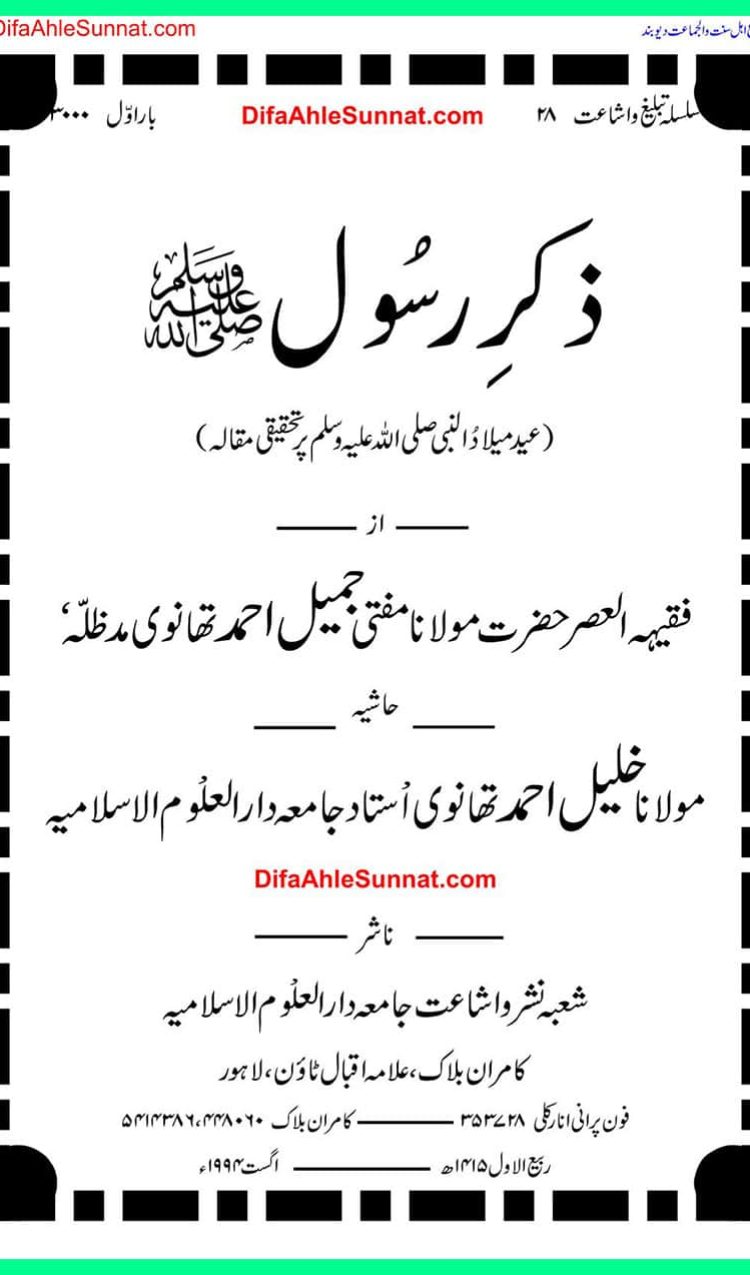 DifaAhleSunnat.com
اہل سنت والجماعت دیوبند
سلسلہ تبلیغ واشاعت ۲۸ DifaAhleSunnat.com بار اوّل ۳۰۰۰
ذکرِ رسُول ﷺ
(عید میلادُ النبی صلی اللہ علیہ وسلم پر تحقیقی مقالہ)
از
فقیہہ العصر حضرت مولانا مفتی جمیل احمد تھانوی مدظلّہٗ
حاشیہ
مولانا خلیل احمد تھانوی اُستاد جامعہ دار العلُوم الاسلامیہ
DifaAhleSunnat.com
ناشر
شعبہ نشر واشاعت جامعہ دار العلُوم الاسلامیہ
کامران بلاک، علامہ اقبال ٹاؤن، لاہور
فون پرانی انارکلی ۳۵۳۷۲۸ کامران بلاک ۴۴۸۰۶۰، ۵۴۱۴۳۸۶
ربیع الاول ۱۴۱۵ھ اگست ۱۹۹۴ء